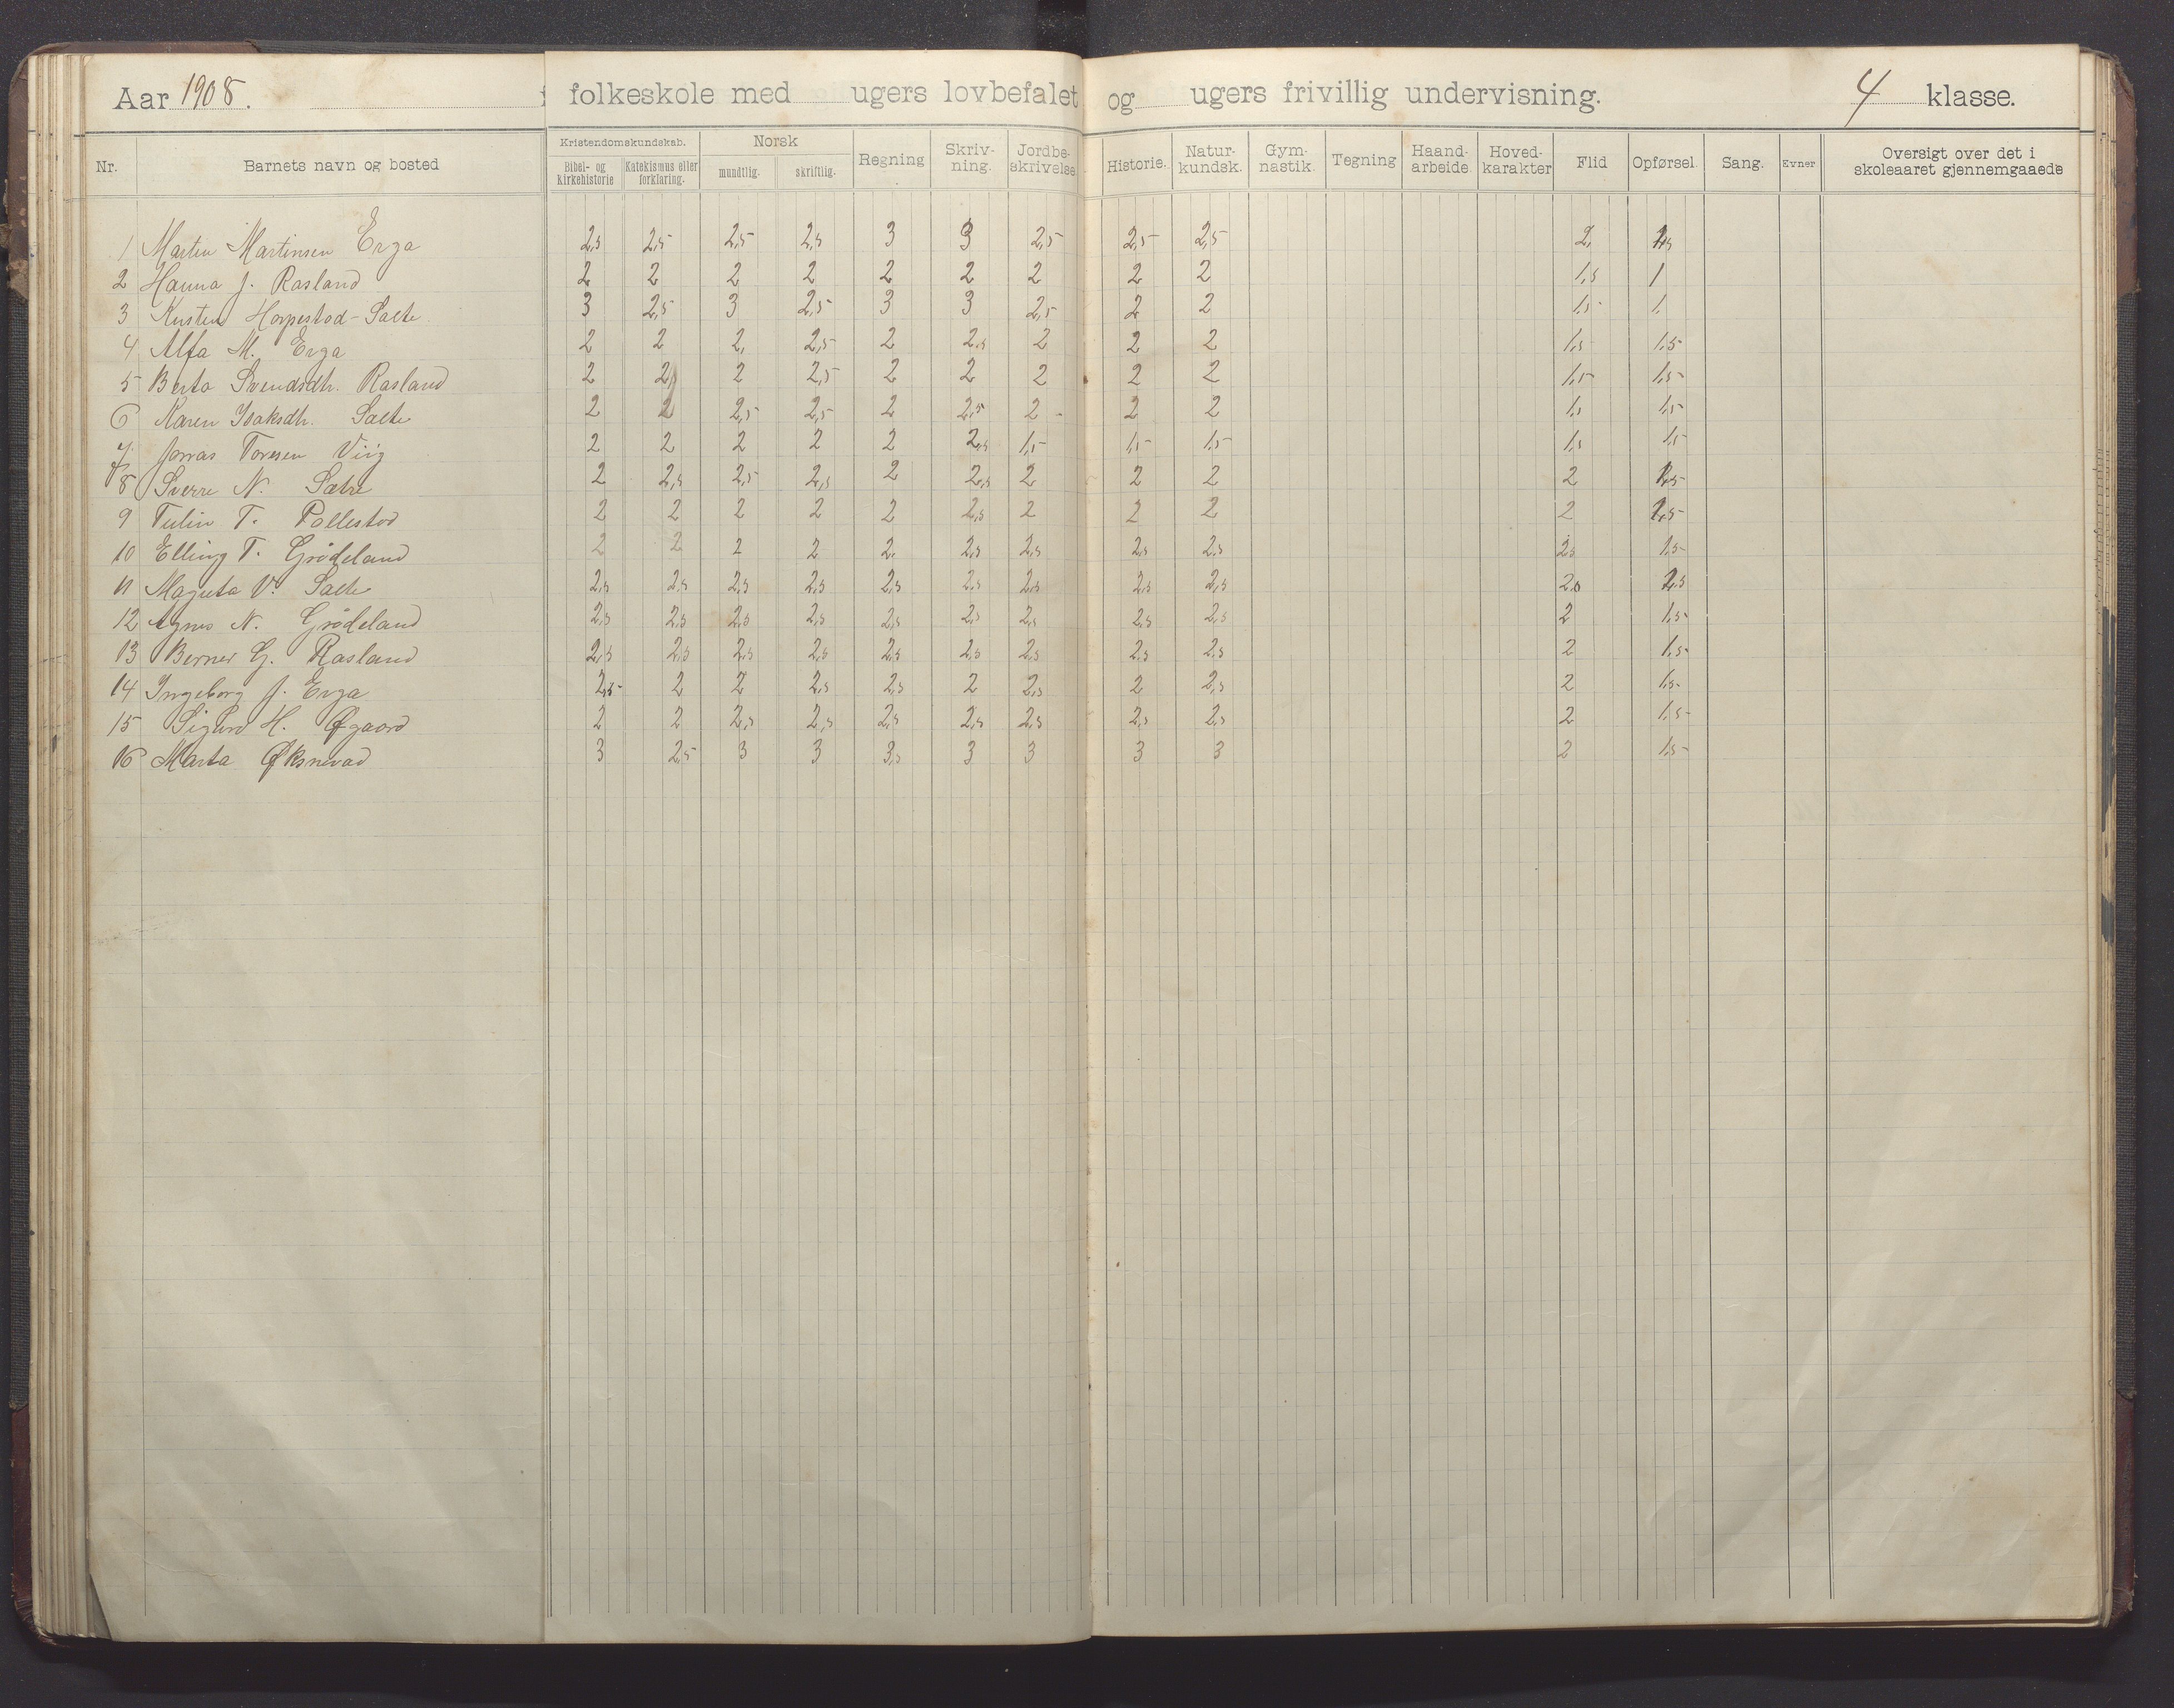 Aar 1908. folkeskole med ugers lovbefalet og ugers frivillig undervisning. 4 klasse.
Nr. Barnets navn og bosted Kristendomskundskab. Bibel- og kirkehistorie Katekismus eller forklaring. Norsk mundtlig. skriftlig. Regning Skriv-ning. Jordbe-skrivelse Historie. Natur-kundsk. Gym-nastik. Tegning Haand-arbeide. Hoved-karakter Flid Opførsel. Sang. Evner Oversigt over det i skoleaaret gjennemgaaede
1 Marten Martinsen Erga 2,5 2,5 2,5 2,5 3 3 2,5 2,5 2,5 2, 1,5
2 Hanna J. Rasland 2 2 2 2 2 2 2 2 2 1,5 1
3 Kristen Horpestad-Salte 3 2,5 3 2,5 3 3 2,5 2 2 1,5 1,
4 Alfa M. Erga 2 2 2, 2,5 2 2,5 2 2 2 1,5 1,5
5 Berta Svendsdtr. Rasland 2 2, 2 2,5 2 2 2 2 2 1,5 1,5
6 Karen Isaksdtr. Salte 2 2 2,5 2,5 2 2,5 2 2 2 1,5 1,5
7 Jonas Toresen Viig 2 2 2 2 2 2,5 1,5 1,5 1,5 1,5 1,5
8 Sverre N. Salte 2 2,5 2,5 2,5 2 2,5 2 2 2 2 1,5
9 Tulin T. Pollestad 2 2 2 2 2 2,5 2 2 2 2 1,5
10 Elling T. Grødeland 2 2 2 2 2. 2,5 2,5 2,5 2,5 2,5 1,5
11 Magreta V. Salte 2,5 2,5 2,5 2,5 2,5 2,5 2,5 2,5 2,5 2,0 2,5
12 Agnes N. Grødeland 2,5 2,5 2,5 2,5 2,5 2,5 2,5 2,5 2,5 2 1,5
13 Berner G. Rasland 2,5 2,5 2,5 2,5 2,5 2,5 2,5 2,5 2,5 2 1,5
14 Ingeborg J. Erga 2,5 2 2 2,5 2,5 2 2,5 2 2,5 2 1,5
15 Sigurd H. Øgaard 2 2 2,5 2,5 2,5 2,5 2,5 2,5 2,5 2 1,5
16 Marta Øksnevad 3 2,5 3 3 3,5 3 3 3 3 2 1,5